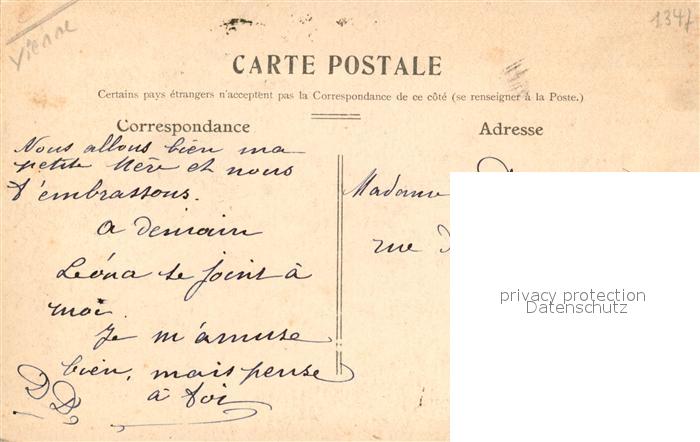 Vienne
134
CARTE POSTALE
Certains pays étrangers n'acceptent pas la Correspondance de ce côté (se renseigner à la Poste.)
Correspondance
Nous allons bien ma
petite Mère et nous
t'embrassons.
a demain
Léona se joint à
moi.
Je m'amuse
bien, mais pense
à toi
Adresse
Madame
rue
privacy protection
Datenschutz